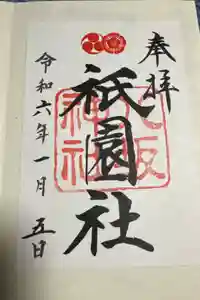 奉拝
祇園社
八坂神社
令和六年一月五日